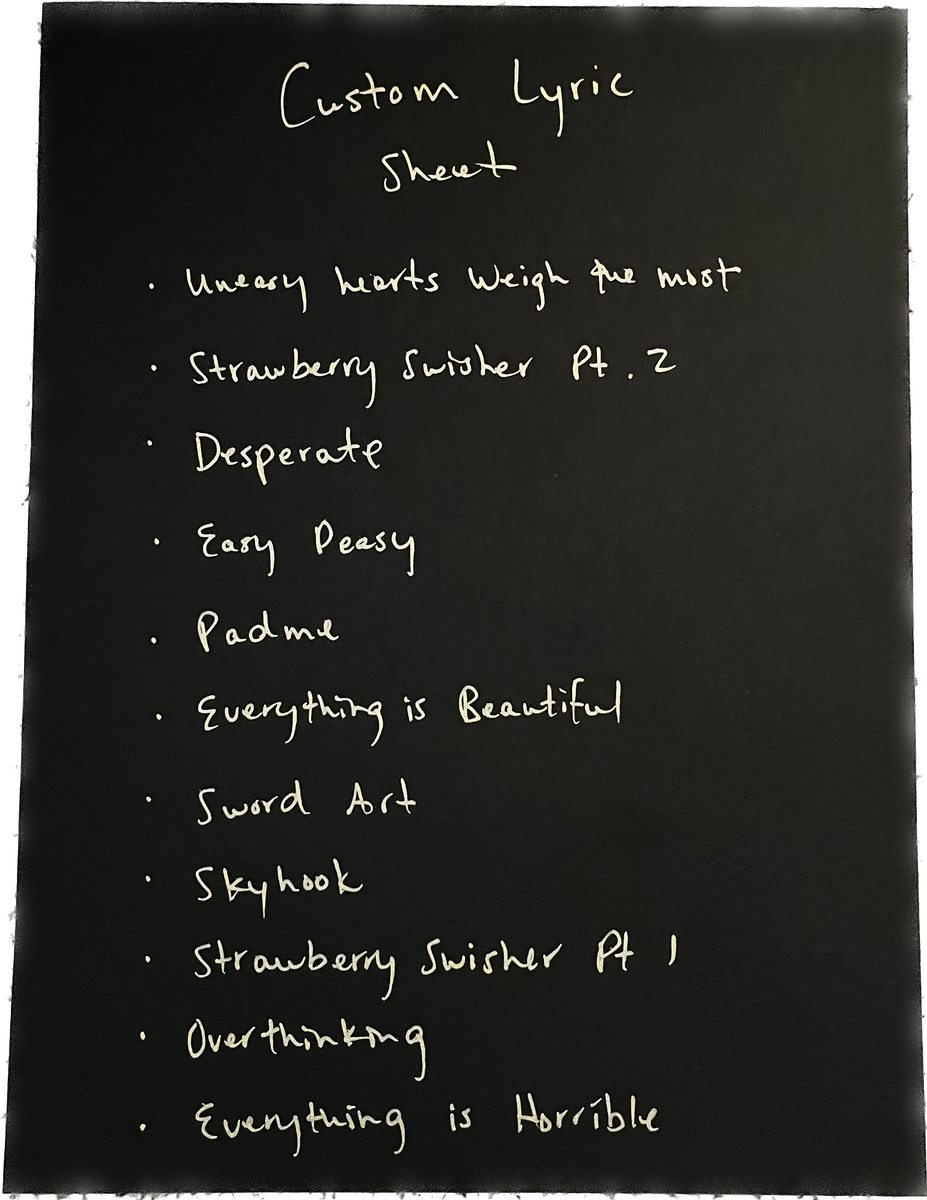 Custom Lyric
Sheet
· Uneasy hearts weigh the most
· Strawberry Swisher Pt. 2
· Desperate
· Easy Peasy
· Padme
· Everything is Beautiful
· Sword Art
· Skyhook
· Strawberry Swisher Pt 1
· Overthinking
· Everything is Horrible